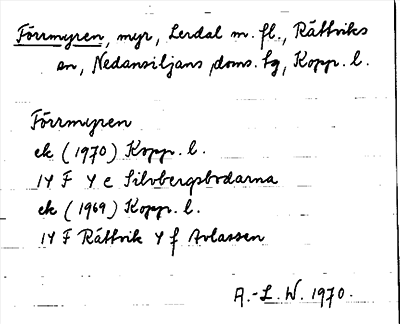 Förrmyren, myr, Lerdal m. fl., Rättviks
sn, Nedansiljans doms. tg, Kopp. l.
Förrmyren
ek (1970) Kopp. l.
14 F 4 e Silvbergsbodarna
ek (1969) Kopp. l.
14 F Rättvik 4 f Avlassen
A.-L. W. 1970.